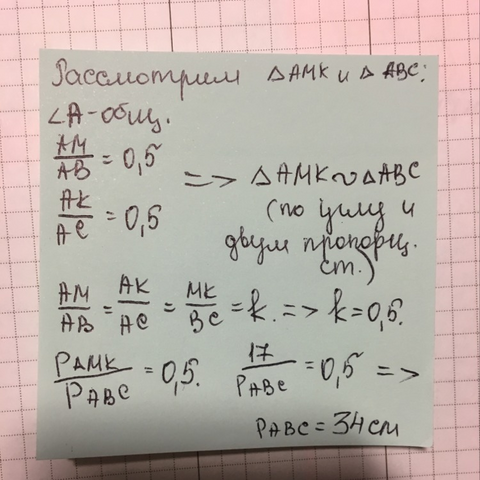 Рассмотрим △AMK и △ ABC:
∠A-общ.
AM/AB = 0,5
AK/AC = 0,5
=> △AMK ∾ △ABC
(по углу и
двум пропорц.
ст.)
AM/AB = AK/AC = MK/BC = k. => k=0,5.
PAMK/PABC = 0,5. 17/PABC = 0,5 =>
PABC = 34 см